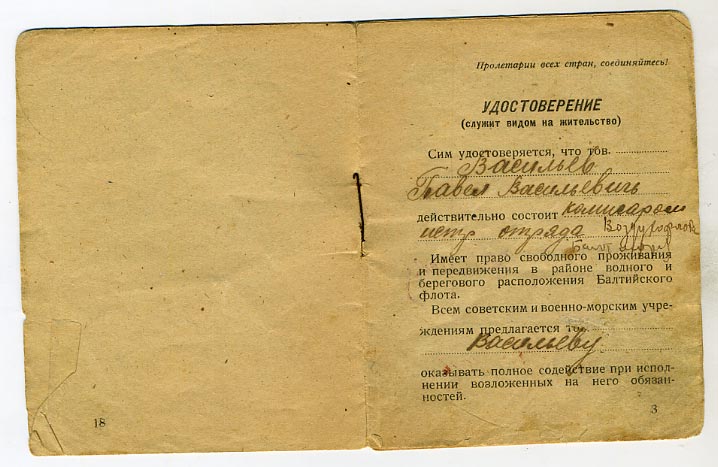 18
Пролетарии всех стран, соединяйтесь!
УДОСТОВЕРЕНИЕ
(служит видом на жительство)
Сим удостоверяется, что тов.
Васильев
Павел Васильевичь
действительно состоит комисаром
истр отряда
Имеет право свободного проживания
и передвижения в районе водного и
берегового расположения Балтийского
флота.
Всем советским и военно-морским учре-
ждениям предлагается тов.
Васильеву
оказывать полное содействие при испол-
нении возложенных на него обязан-
ностей.
3